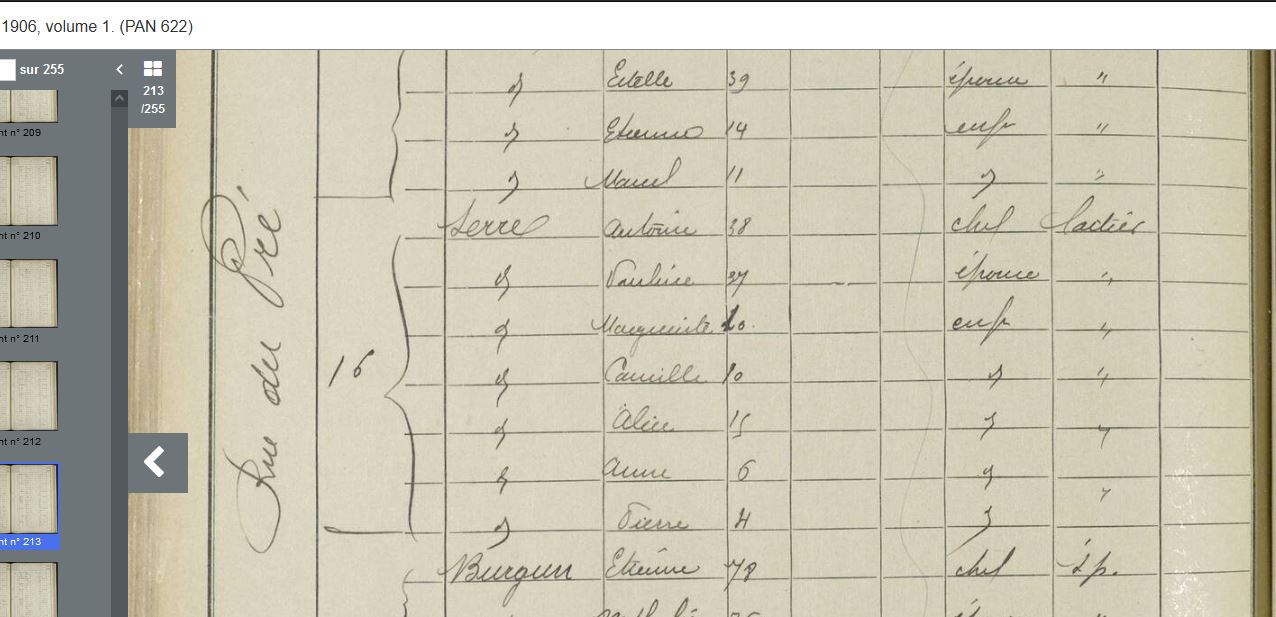 1906, volume 1. (PAN 622)
sur 255
213
/255
nt n° 209
nt n° 210
nt n° 211
nt n° 212
nt n° 213
Rue du Pré
16
d Estelle 39 épouse "
d Etienne 14 enf "
d Marcel 11 d "
Serre Antoine 38 chef laitier
d Pauline 37 épouse "
d Marguerite 10. enf "
d Camille 10 d "
d Alice 15 d "
d Anne 6 d "
d Pierre 4 d
Burgun Etienne 78 chef Sp.